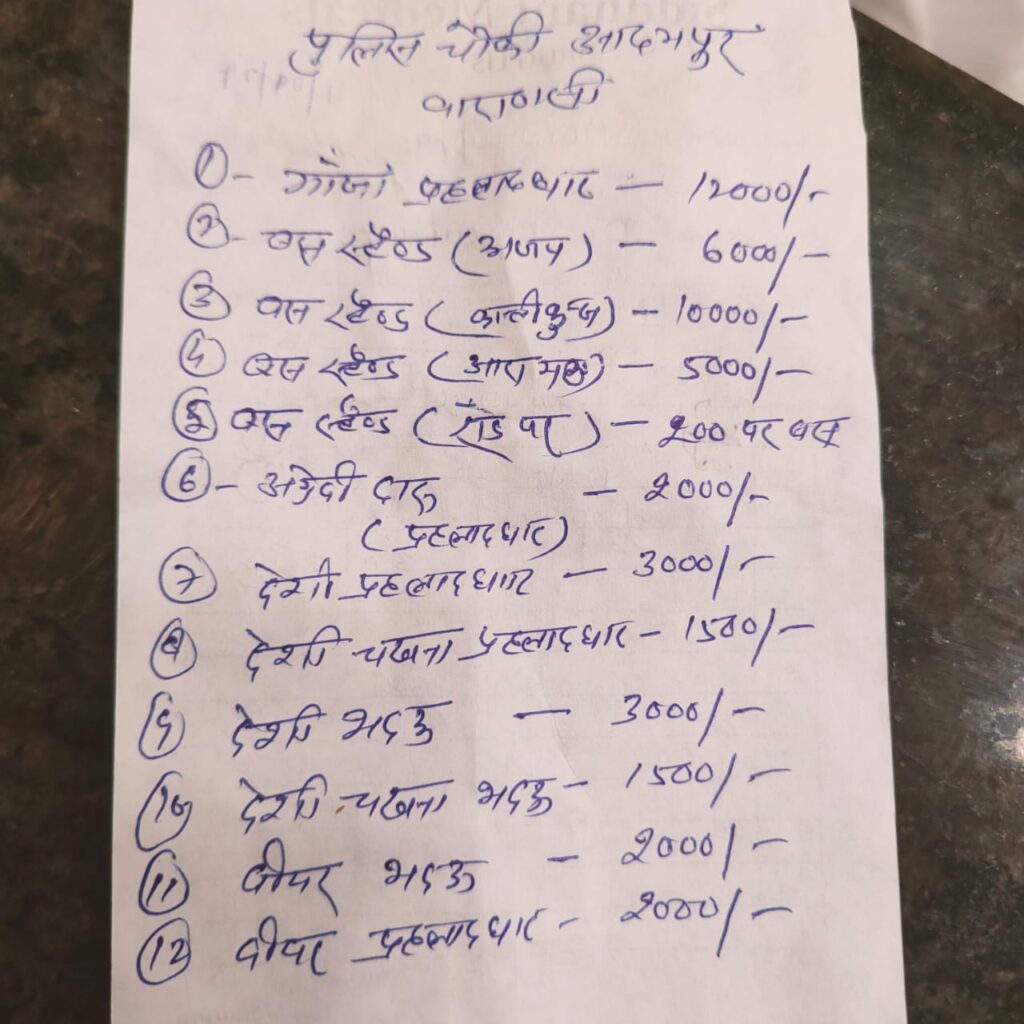 पुलिस चौकी आदमपुर
वाराणसी
① - गाँजा प्रहलादघाट — 12000/-
② - बस स्टैण्ड (अजय) — 6000/-
③ बस स्टैण्ड (कालीकुन्ज) — 10000/-
④ बस स्टैण्ड — 5000/-
⑤ बस स्टैण्ड (रोड पर) — 200 पर बस
⑥ - अंग्रेजी दारू — 2000/-
(प्रहलादघाट)
⑦ देशी प्रहलादघाट — 3000/-
⑧ देशी चखना प्रहलादघाट — 1500/-
⑨ देशी भदऊ — 3000/-
⑩ देशी चखना भदऊ — 1500/-
⑪ बीयर भदऊ — 2000/-
⑫ बीयर प्रहलादघाट - 2000/-